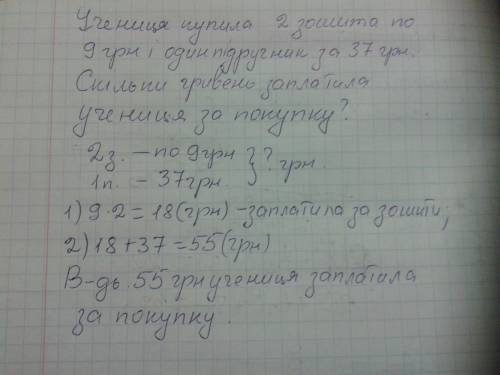 Учениця купила 2 зошита по
9 грн і один підручник за 37 грн.
Скільки гривень заплатила
учениця за покупку?
2з. – по 9 грн } ? грн.
1п. – 37 грн.
1) 9·2=18(грн) –заплатила за зошити;
2) 18+37=55(грн)
В-дь. 55 грн учениця заплатила
за покупку.